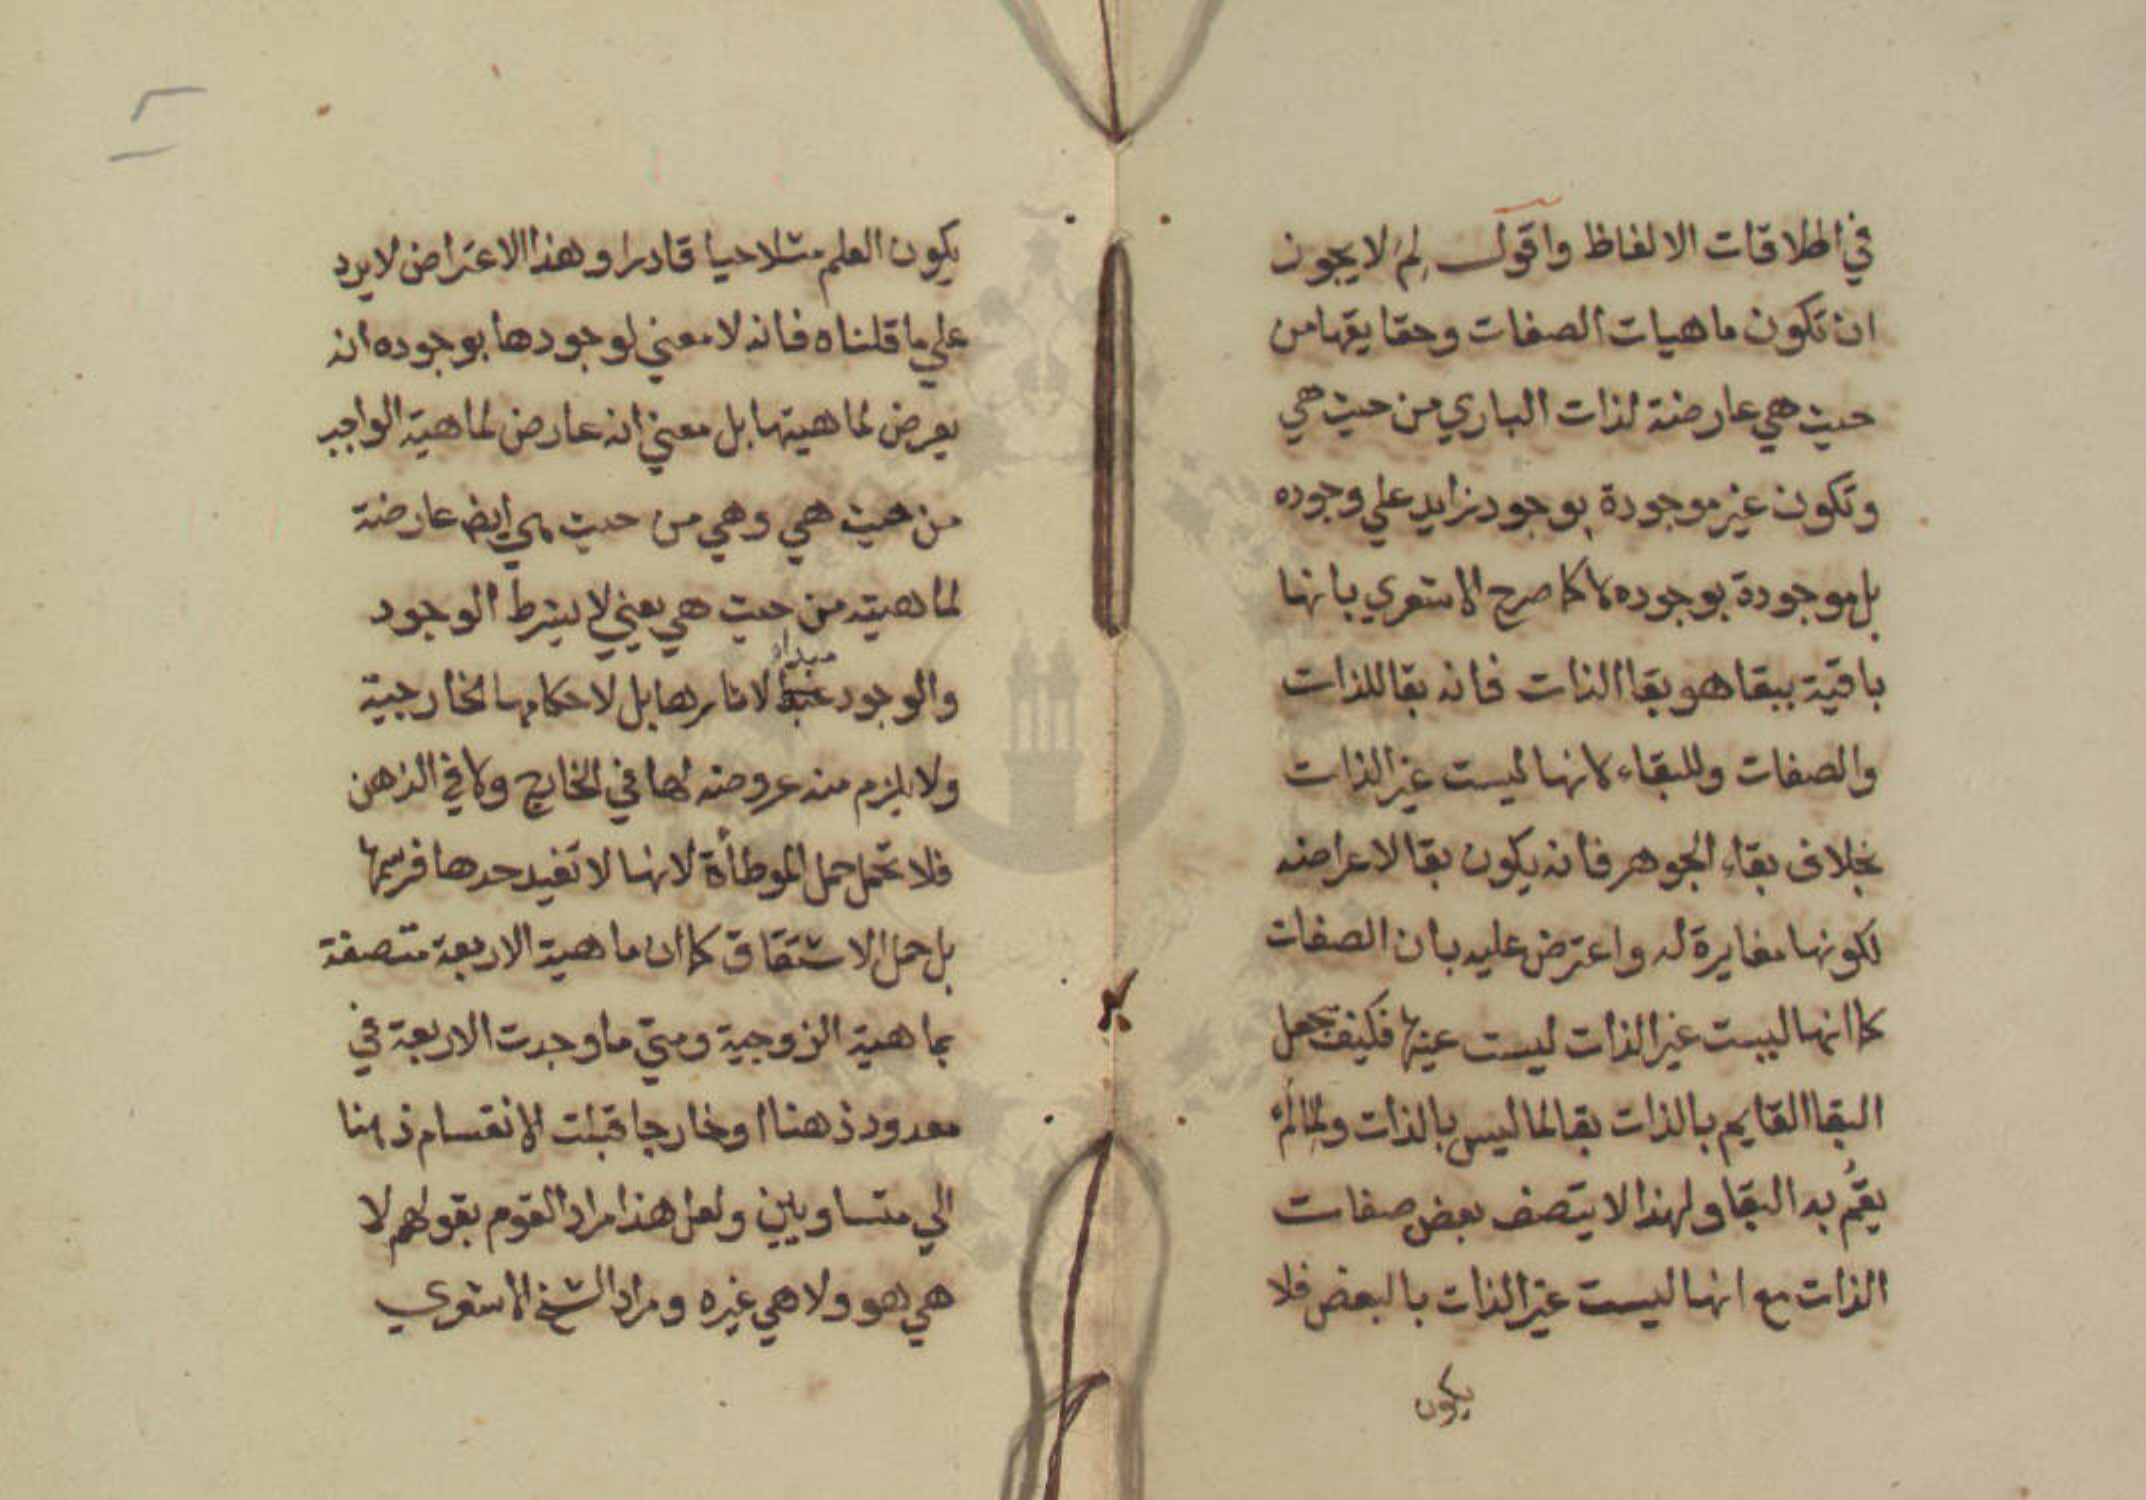 في اطلاقات الالفاظ واقول لِمَ لا يجوز
ان تكون ماهيات الصفات وحقايقها من
حيث هي عارضة لذات الباري من حيث هي
وتكون غير موجودة بوجود زايد علي وجوده
بل موجودة بوجوده كما صرح الاشعري بانها
باقية ببقا هو بقا الذات فانه بقا للذات
والصفات وللبقاء لانها ليست غير الذات
بخلاف بقاء الجوهر فانه يكون بقا لاعراضه
لكونها مغايرة له واعترض عليه بان الصفات
كما انها ليست غير الذات ليست عينها فكيف يجعل
البقا القايم بالذات بقا لما ليس بالذات ولما لم
يقُم به البقا ولهذا لا يتصف بعض صفات
الذات مع انها ليست غير الذات بالبعض فلا
يكون
يكون العلم مثلا حيا قادرا وهذا الاعتراض لا يرد
علي ما قلناه فانه لا معني لوجودها بوجوده انه
يعرض لماهيتها بل معني انه عارض لماهية الواجب
من حيث هي وهي من حيث هي ايضا عارضة
لماهيته من حيث هي يعني لا بشرط الوجود
مبداء
والوجود لاثارها بل لاحكامها الخارجية
ولا يلزم منه عروضه لها في الخارج ولا في الذهن
فلا تحمل حمل المواطأة لانها لا تفيد حدها فرسمها
بل حمل الاشتقاق كما ان ماهية الاربعة متصفة
بماهية الزوجية ومتي ما وجدت الاربعة في
معدود ذهنا او خارجا قبلت الانقسام ذهنا
الي متساويين ولعل هذا مراد القوم بقولهم لا
هي هو ولا هي غيره ومراد الشيخ الاشعري